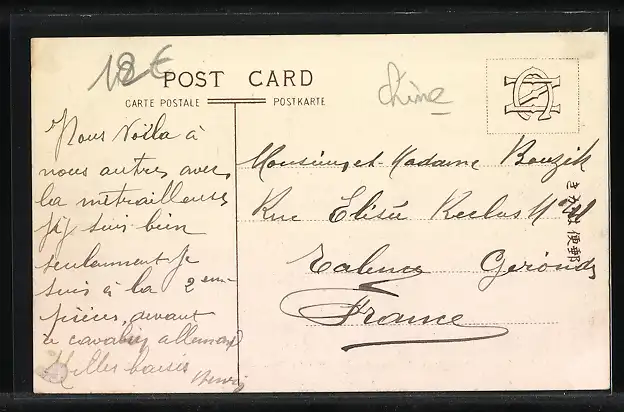 18 €
POST CARD
chine
CARTE POSTALE
POSTKARTE
Nous Voïla à
nous autres avec
la mitrailleuse
j'y suis bien
seulement je
suis à la 2eme
pièces, devant
le cavalier allemand
Milles baisis
Henri
Monsieur et Madame Bouzik
Rue Elisée Reclus
Talence Gironde
France
きがは便郵